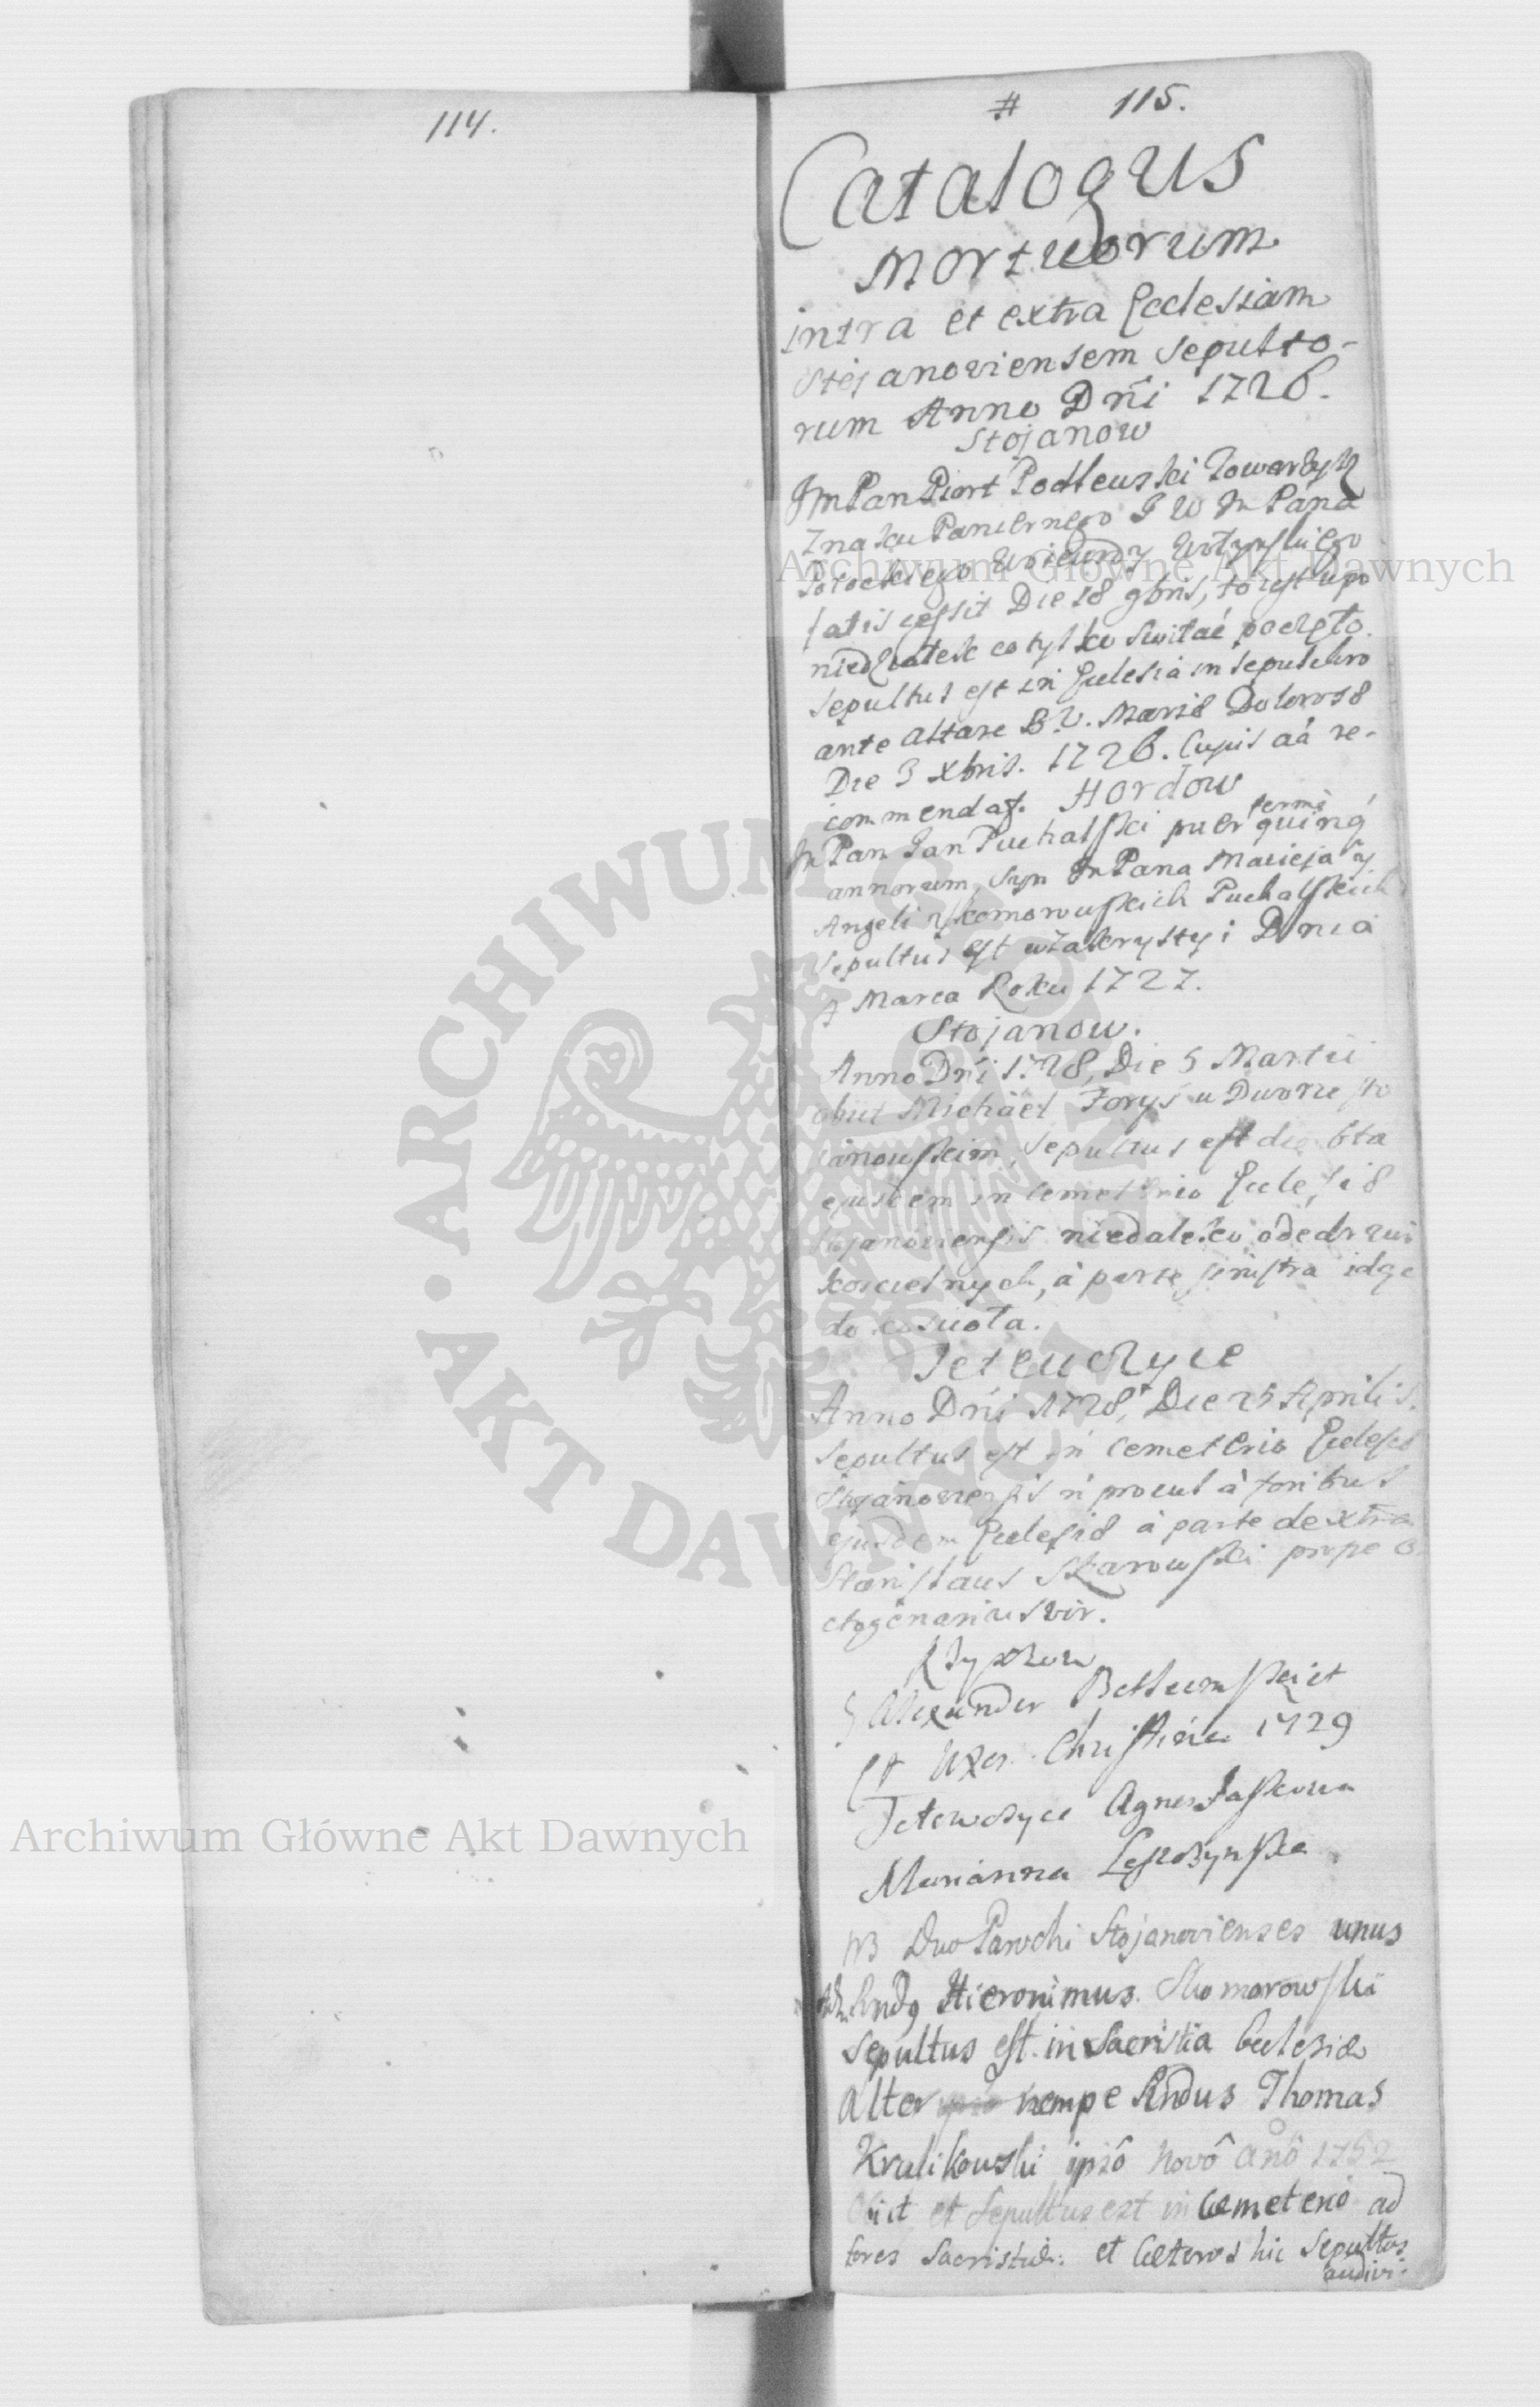 114.
# 115.
Catalogus
Mortuorum
intra et extra Ecclesiam
Stojanoviensem sepulto-
rum Anno Dñi 1726.
Stojanow
Jm Pan Piort Podleuski Towarzysz
Znaku Pancernego J W Jm Pana
Potockiego Woiewody Wołynskiego
fatis cessit Die 18 9bris, to iest w po
niedziałek co tylko switać poczęło.
sepultus est in Ecclesia in sepulchro
ante altare B.V. Mariæ Dolorosæ
Die 3 Xbris. 1726. Cujus aã re-
commendat. Hordow
Jm Pan Jan Puchalski puer fermè quinq́
annorum, syn Jm Pana Macieja y
Angeli z Komorowskich Puchalskich
sepultus est w Zakrystyi Dnia
Marca Roku 1727.
Stojanow.
Anno Dñi 1728, Die 5 Martii
obiit Michäel Forys u Dworze sto
ianowskim, sepultus est die 6ta
ejusdem in Cemeterio Ecclesiæ
Stojanoviensis niedaleko ode drzwi
koscielnych, à parte sinistra idąc
do koscioła.
Tetewczyce
Anno Dñi 1728, Die 25 Aprilis.
sepultus est in Cemeterio Ecclesiæ
Stojanoviensis ñ procul à foribus
ejusdem Ecclesiæ à parte dextra
Stanislaus prope o
ctogenarius vir.
Alexander et
Uxor Christina 1729
Tetewczyce Agnes
Marianna Leszczynska
NB Duo Parochi Stojanovienses unus
Hieronimus Skomorowski
sepultus est in Sacristia Ecclesiæ
Alter nempe Rndus Thomas
Krulikowski ipsô novô anô 1752
Obiit et Sepultus est in Cæmeterio ad
fores Sacristiæ: et Cæteros hic sepultos
audivi.
Archiwum Główne Akt Dawnych
Archiwum Główne Akt Dawnych
ARCHIWUM GŁÓWNE
AKT DAWNYCH